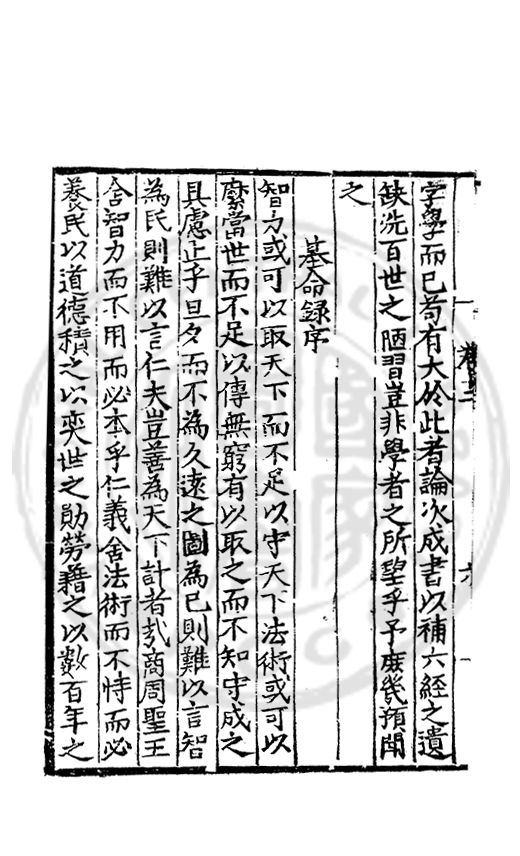 字學而已苟有大於此者論次成書以補六經之遺
缺洗百世之陋習豈非學者之所望乎予庶幾預聞
之
基命録序
智力或可以取天下而不足以守天下法術或可以
縻當世而不足以傳無窮有以取之而不知守成之
具慮止乎旦夕而不為久遠之圖為已則難以言智
為民則難以言仁夫豈善為天下計者㢤商周聖王
舍智力而不用而必本乎仁義舍法術而不恃而必
養民以道德積之以奕世之勛勞藉之以數百年之
卷十二
六